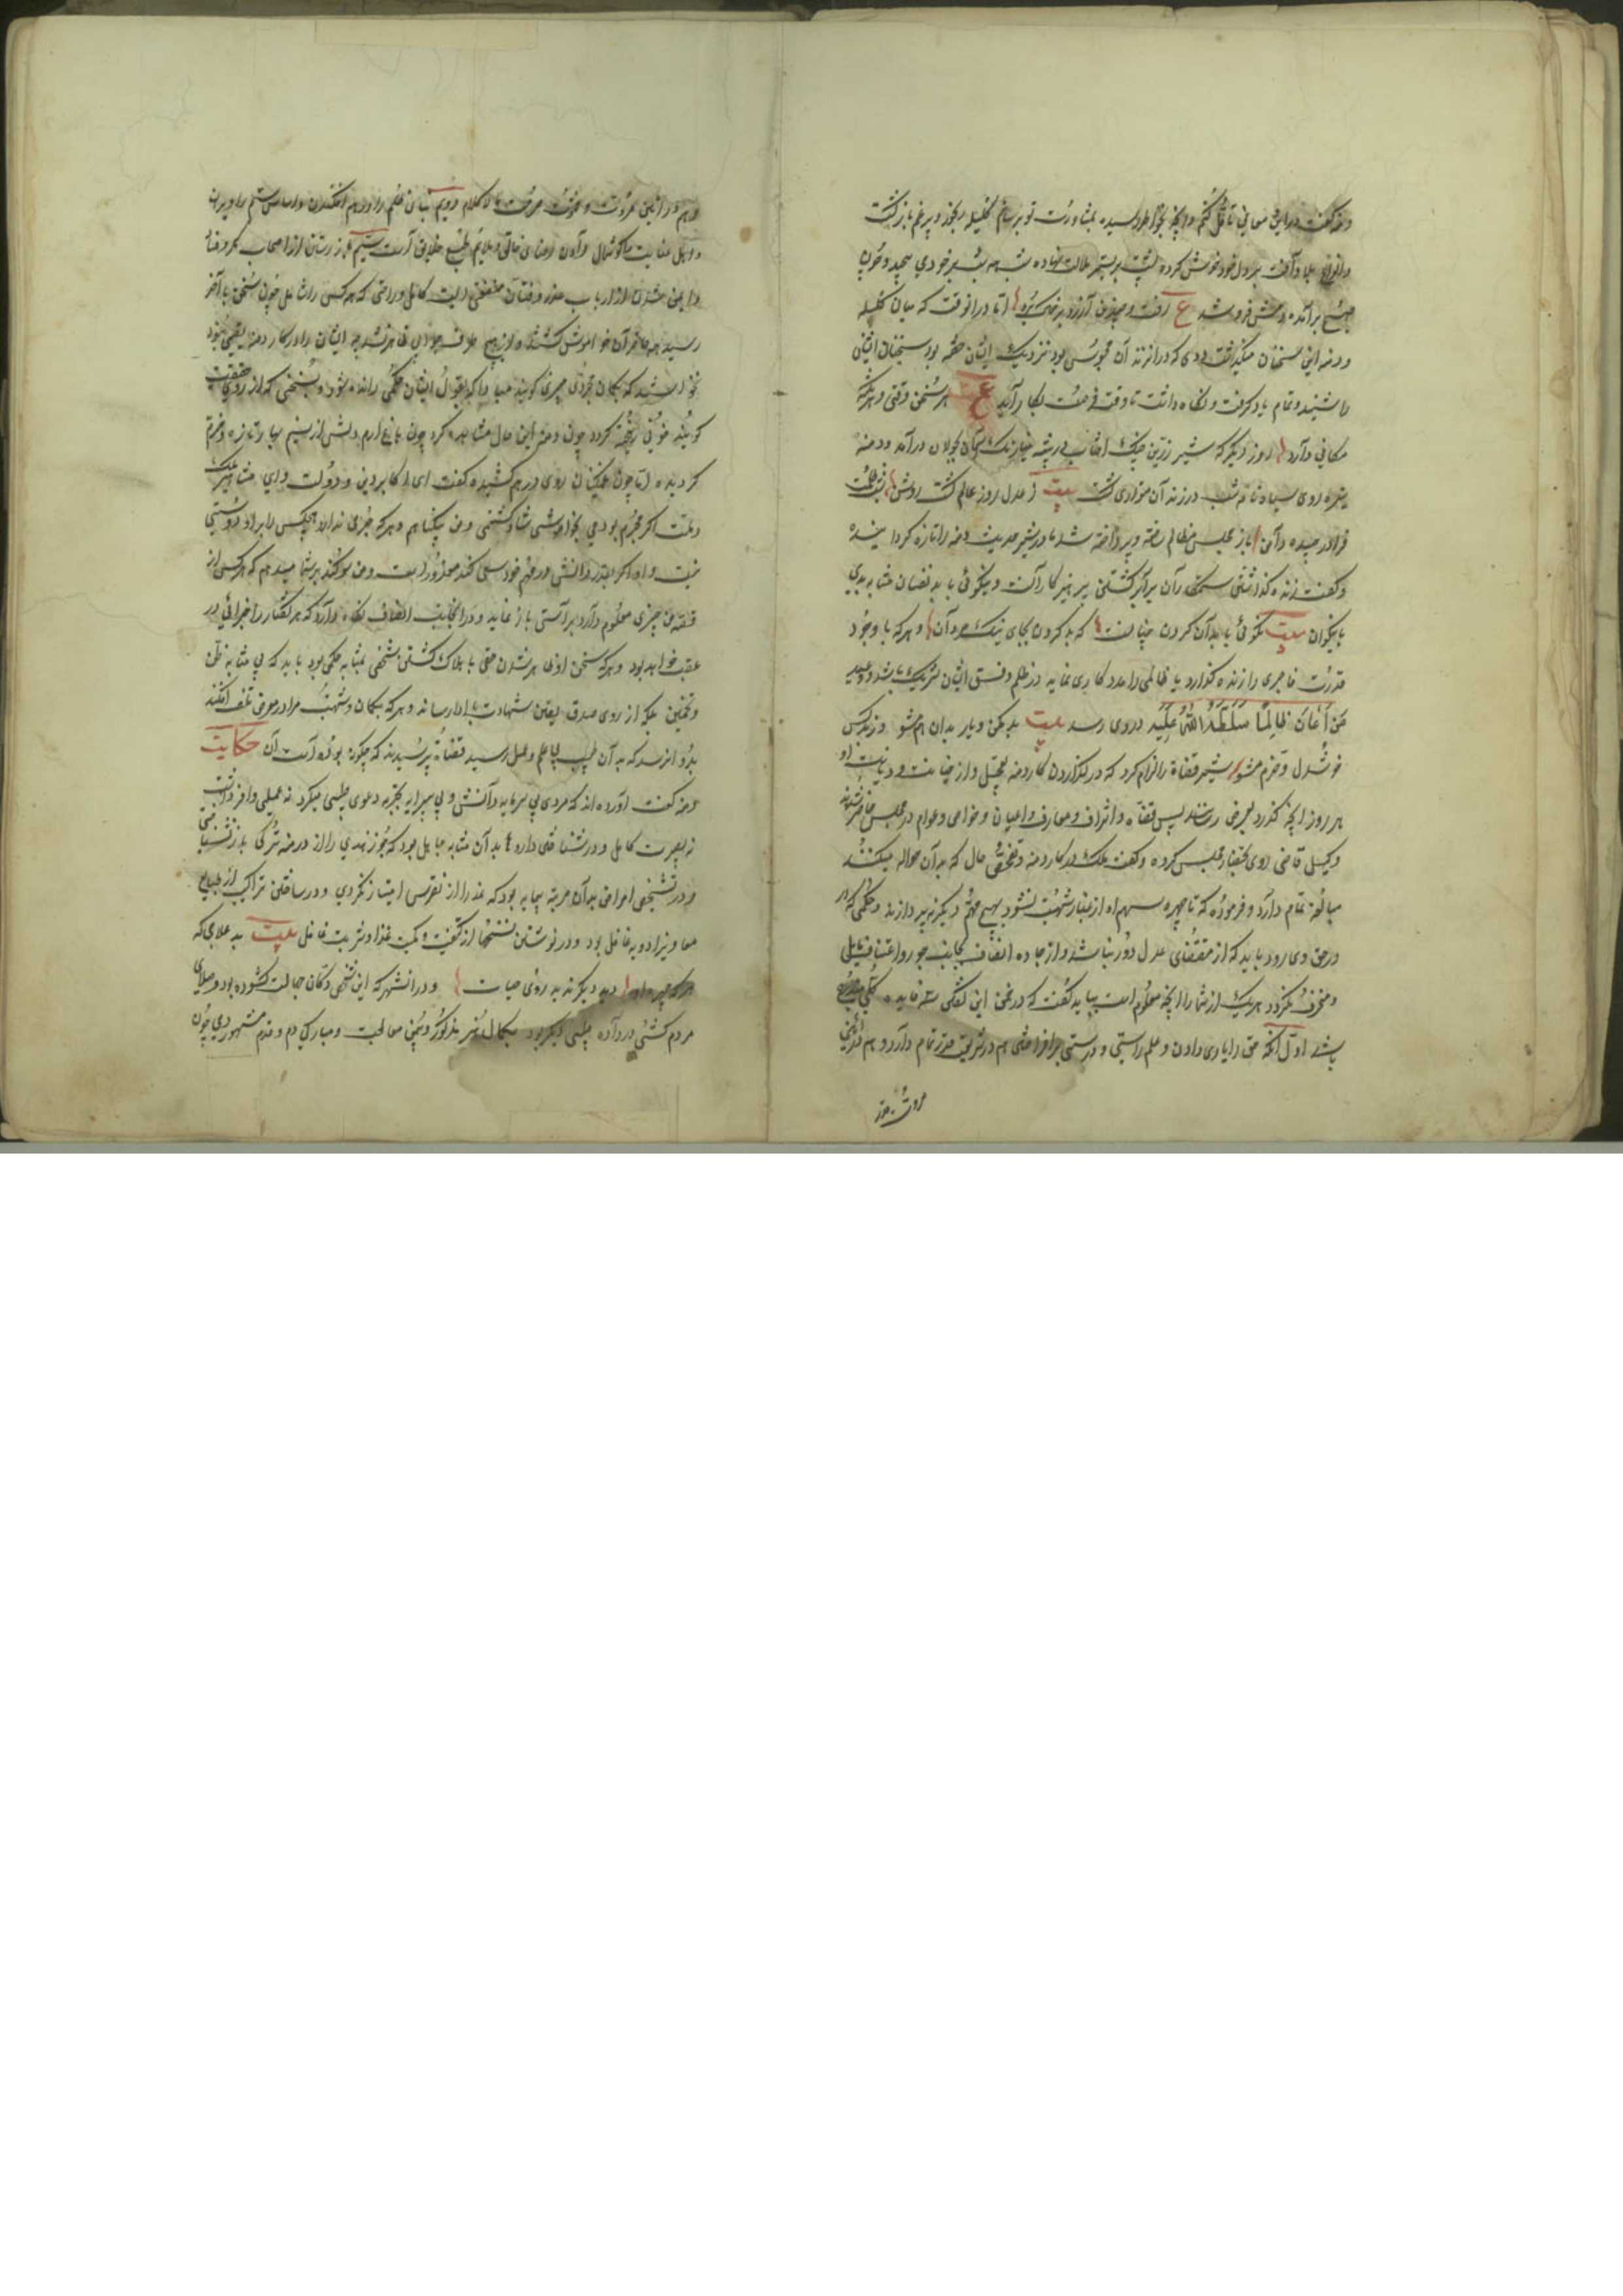 دمنه گفت درین معانی تأمل کنم و آنچه بخاطر رسیده بمشاورت تو برسانم کلیله رنجور و پرغم بازگشت
و انواع بلا و آفت بر دل خود خوش کرده پشت بر بستر ملالت نهاده شب همه شب بر خود می پیچید و چون
صبح برآمد دمش فرو شد ع رفت و چندین آرزو در خاک برد اما در آنوقت که میان کلیله
و دمنه این سخنان میگذشت ددی که در آن زندان محبوس بود نزدیک ایشان خفته بود سخنان ایشان
را شنید و تمام یاد گرفت و نگاه داشت تا وقت فرصت بکار آید ع هر سخن وقتی و هر نکته
مکانی دارد روز دیگر که شیر زرین چنگ آفتاب در بیشه نیلی رنگ آسمان بجولان درآمد و دمنه
تیره روی سیاه نامه شب در زندان متواری گشت بیت ز عدل روز عالم گشت روشن شب ظلمت
فرا درچیده دامن باز مجلس مظالم ساخته و پرداخته شد مادر شیر حدیث دمنه را تازه گردانیده
و گفت زنده گذاشتن ستمکاران برابر کشتن پرهیزکارانست و نیکوئی با بدان بمثابه بدی
با نیکوان بیت نکوئی با بدان کردن چنانست که بد کردن بجای نیک مردان و هر که با وجود
قدرت فاجری را زنده گذارد یا ظالمی را مددکاری نماید در ظلم و فسق ایشان شریک باشد و وعید
مَن اَعَانَ ظَالِمًا سَلَّطَهُ اللهُ عَلَیهِ در وی رسد بیت بد مکن و یار بدان هم مشو وز بد کس
خوشدل و خرم مشو شیر قضاة را الزام کرد که در گزاردن کار دمنه تعجیل و از خیانت و دیانت او
هر روز آنچه گذرد بعرض رسانند پس قضاة و اشراف و معارف و اعیان و خواص و عوام در مجلس حاضر شدند
وکیل قاضی روی بحضار مجلس کرده و گفت ملک در کار دمنه و تفحص حال که بدان حواله میکنند
مبالغه تمام دارد و فرموده که تا چهره مهم او از غبار شبهت نشود بهیچ مهم دیگر نپردازند و حکمی که
در حق وی رود باید که از مقتضای عدل دور نباشد و از جاده انصاف بجانب جور و اعتساف مایل
و منحرف نگردد هر یک از شما را آنچه معلومست بباید گفت که در ضمن این گفتگو سه فایده کلی مندرج
باشد اول آنکه حق را یاری دادن و علم راستی و درستی برافراختن هم در شریعت قدر تمام دارد و هم در آیین
مروت قدر
و هم در آئین مروت و فتوت حرمت لا کلام دویم بنای ظلم را در هم افکندن و اساس ستم را ویران
و اهل خیانت را گوشمال دادن رضای خالق و ملایم طبع خلایق است سیم باز رستن از اصحاب مکر و فساد
و ایمن شدن از ارباب غدر و فتان منفعتی است کامل و راحتی که همه کس را شامل چون سخن بآخر
رسید همه حاضران خاموش گشتند و از هیچ طرف جوابی ظاهر نشد چه ایشان را در کار دمنه یقینی نبود
نخواستند که بگمان مجرد چیزی گویند مبادا که بقول ایشان حکمی رانده شود و بسخنی که از روی حقیقت
گویند خونی ریخته گردد چون دمنه این حال مشاهده کرد چون باغ ارم دلش از نسیم بهار تازه و خرم
گردید اما چون غمگینان روی در هم کشیده گفت ای اکابر دین و دولت و ای مشاهیر ملک
و ملت اگر مجرم بودمی بخاموشی شما شاد گشتمی و من بیگناهم و هر که جرمی ندارد هیچکس را بر او دستی
نیست و او اگر بقدر دانش در مهم خود سعی کند معذور است و من سوگند بر شما میدهم که هر کس از
قصه من چیزی معلوم دارد براستی باز نماید و در آن جانب انصاف نگاه دارد که هر گفتار را جزائی در
عقب خواهد بود و هر که سخن او در ظاهر شدن حق یا هلاک گشتن شخصی بمثابه حکمی بود باید که نه بمثابه ظن
و تخمین بلکه از روی صدق یقین شهادت بادا رساند و هر که بگمان و شبهت مرا در معرض تلف افکند
بدو آن رسد که به آن طبیب بی علم و عمل رسید قضاة پرسیدند که چگونه بوده است آن حکایت
دمنه گفت آورده اند که مردی بی سرمایه دانش و بی پیرایه تجربه دعوی طبیبی میکرد نه علمی وافر داشت
نه بصیرت کامل و در شناختن داروها به آن مثابه جاهل بود که جوز هندی را از درمنه ترکی باز نشناختی
و در تشخیص امراض بدان مرتبه بیمایه بود که درد را از نقرس امتیاز نکردی و در ساختن تراکیب از طبایع
معاویز ادویه غافل بود و در نوشتن نسخها از کیفیت و کمیت غذا و شربت غافل بیت بد علاجی که
هر که چهره او دید دیگر ندید روی حیات و در آن شهر که این شخص دکان جهالت گشوده بود و صلای
مردم کشی در داده طبیبی دیگر بود بکمال هنر مذکور و بیمن معالجت و مبارکی دم و قدم مشهور دمی چون